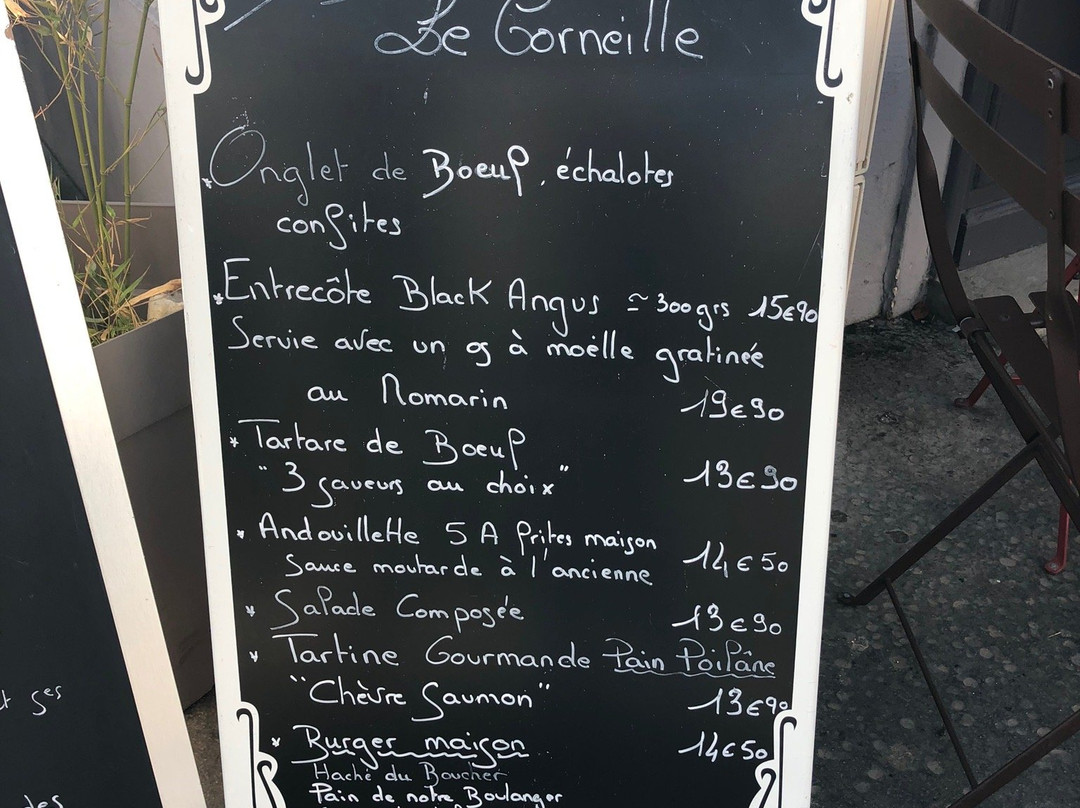 Le Corneille
* Onglet de Boeuf, échalotes
confites
* Entrecôte Black Angus ≃ 300grs 15€90
Servie avec un os à moëlle gratinée
au Romarin 19€90
* Tartare de Boeuf
"3 saveurs au choix" 13€90
* Andouillette 5 A frites maison
Sauce moutarde à l'ancienne 14€50
* Salade Composée 13€90
* Tartine Gourmande Pain Poilâne
"Chèvre Saumon" 13€90
* Burger maison 14€50
Haché du Boucher
Pain de notre Boulanger
ses
des